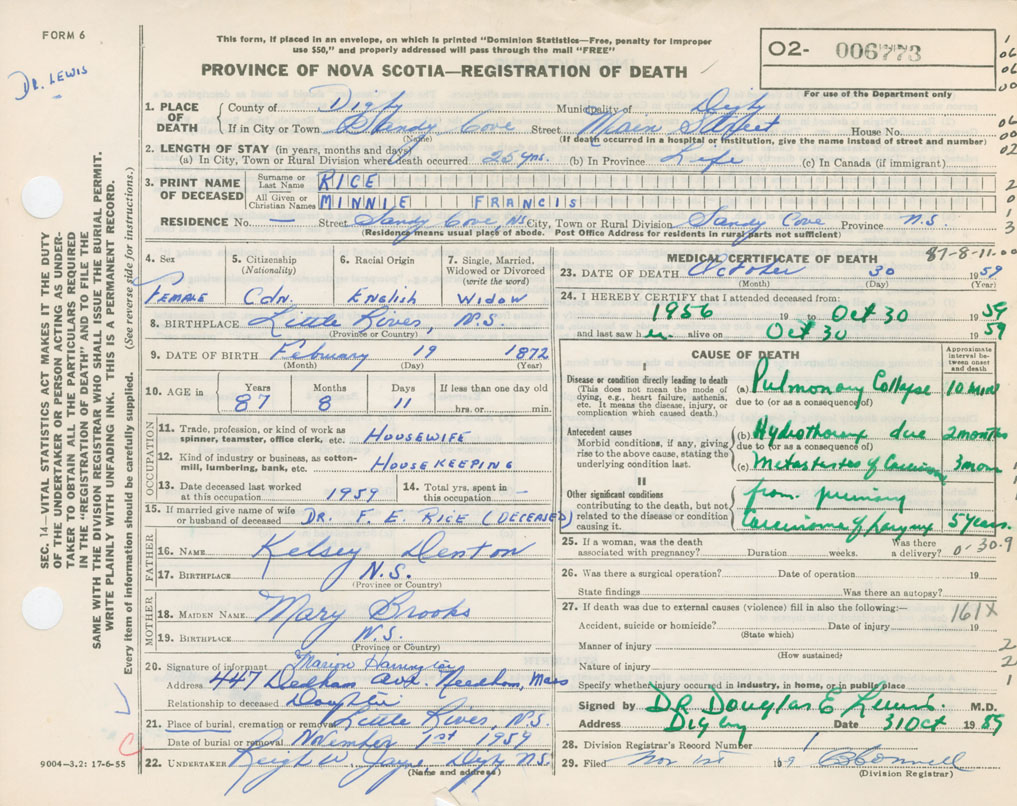 FORM 6
This form, if placed in an envelope, on which is printed "Dominion Statistics—Free, penalty for improper
use $50," and properly addressed will pass through the mail "FREE"
PROVINCE OF NOVA SCOTIA—REGISTRATION OF DEATH
02- 006773
For use of the Department only
DR. LEWIS
SEC. 14—VITAL STATISTICS ACT MAKES IT THE DUTY
OF THE UNDERTAKER OR PERSON ACTING AS UNDER-
TAKER TO OBTAIN ALL THE PARTICULARS REQUIRED
IN THE "REGISTRATION OF DEATH" AND TO FILE THE
SAME WITH THE DIVISION REGISTRAR WHO SHALL ISSUE THE BURIAL PERMIT.
WRITE PLAINLY WITH UNFADING INK. THIS IS A PERMANENT RECORD.
Every item of information should be carefully supplied. (See reverse side for instructions.)
1. PLACE OF DEATH County of Digby Municipality of Digby
If in City or Town Sandy Cove Street Main Street House No.
(Name) (If death occurred in a hospital or institution, give the name instead of street and number)
2. LENGTH OF STAY (in years, months and days)
(a) In City, Town or Rural Division where death occurred 25 yrs. (b) In Province Life (c) In Canada (if immigrant)
3. PRINT NAME OF DECEASED Surname or Last Name RICE
All Given or Christian Names MINNIE FRANCIS
RESIDENCE No. — Street Sandy Cove, NS City, Town or Rural Division Sandy Cove Province N.S.
(Residence means usual place of abode. Post Office Address for residents in rural parts not sufficient)
4. Sex Female
5. Citizenship (Nationality) Cdn.
6. Racial Origin English
7. Single, Married, Widowed or Divorced (write the word) Widow
8. BIRTHPLACE Little River, N.S.
(Province or Country)
9. DATE OF BIRTH February 19 1872
(Month) (Day) (Year)
10. AGE in Years 87 Months 8 Days 11 If less than one day old hrs. or min.
OCCUPATION
11. Trade, profession, or kind of work as spinner, teamster, office clerk, etc. HOUSEWIFE
12. Kind of industry or business, as cotton-mill, lumbering, bank, etc. HOUSEKEEPING
13. Date deceased last worked at this occupation 1959
14. Total yrs. spent in this occupation —
15. If married give name of wife or husband of deceased DR. F. E. RICE (DECEASED)
FATHER
16. NAME Kelsey Denton
17. BIRTHPLACE N.S.
(Province or Country)
MOTHER
18. MAIDEN NAME Mary Brooks
19. BIRTHPLACE N.S.
(Province or Country)
20. Signature of informant Marion Harrington
Address 447 Dedham Ave. Needham, Mass
Relationship to deceased Daughter
21. Place of burial, cremation or removal Little River, N.S.
Date of burial or removal November 1st 1959
22. UNDERTAKER W. Jayne Digby N.S.
(Name and address)
9004—3.2: 17-6-55
MEDICAL CERTIFICATE OF DEATH 87-8-11
23. DATE OF DEATH October 30 1959
(Month) (Day) (Year)
24. I HEREBY CERTIFY that I attended deceased from:
1956 19 to Oct 30 1959
and last saw her alive on Oct 30 1959
CAUSE OF DEATH
Approximate interval between onset and death
I
Disease or condition directly leading to death
(This does not mean the mode of dying, e.g., heart failure, asthenia, etc. It means the disease, injury, or complication which caused death.)
(a) Pulmonary Collapse 10 min
due to (or as a consequence of)
Antecedent causes
Morbid conditions, if any, giving rise to the above cause, stating the underlying condition last.
(b) Hydrothorax due 2 months
due to (or as a consequence of)
(c) Metastases of Carcinoma 3 mon
II
Other significant conditions
contributing to the death, but not related to the disease or condition causing it.
from primary
Carcinoma of Larynx 5 years.
25. If a woman, was the death associated with pregnancy? Duration weeks. Was there a delivery? 0-30.9
26. Was there a surgical operation? Date of operation 19
State findings Was there an autopsy?
27. If death was due to external causes (violence) fill in also the following:— 161X
Accident, suicide or homicide? Date of injury 19
(State which)
Manner of injury
(How sustained)
Nature of injury
Specify whether injury occurred in industry, in home, or in public place
Signed by DR Douglas E Lewis M.D.
Address Digby Date 31 Oct 1959
28. Division Registrar's Record Number 1
29. Filed Nov 1st 19
(Division Registrar)